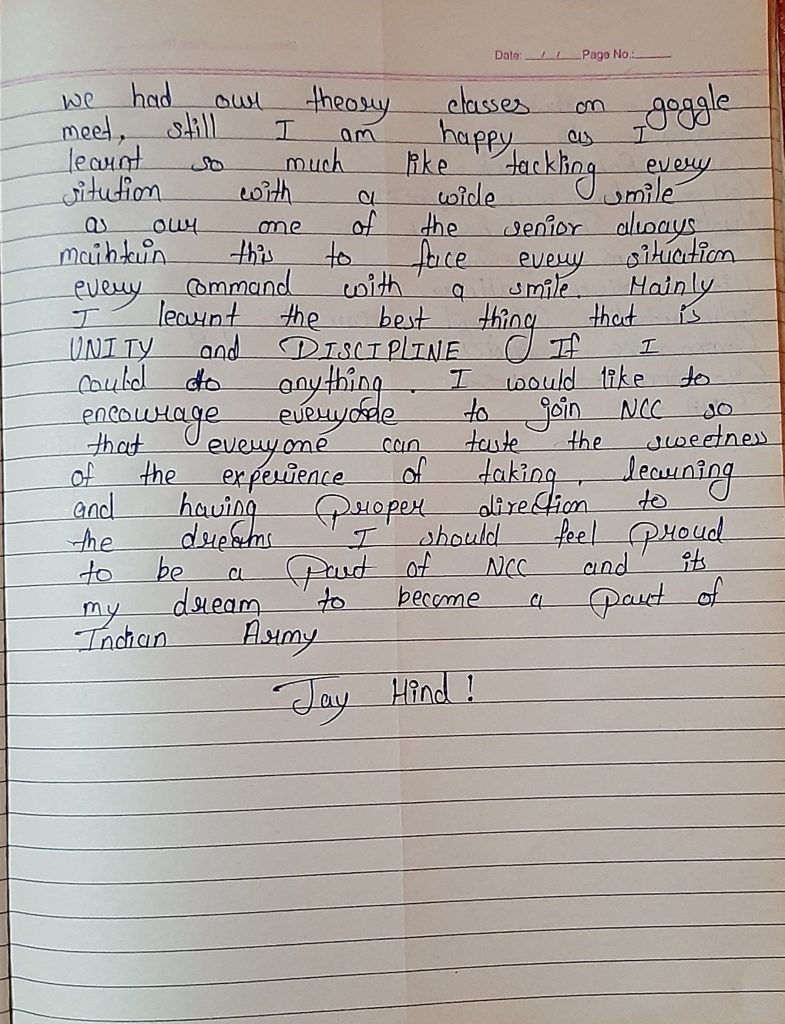 Date: __/__/__ Page No.:____
we had our theory classes on goggle
meet, still I am happy as I
learnt so much like tackling every
sitution with a wide smile
as our one of the senior always
maintain this to face every situation
every command with a smile. Mainly
I learnt the best thing that is
UNITY and DISCIPLINE If I
could do anything. I would like to
encourage everyone to join NCC so
that everyone can taste the sweetness
of the experience of taking, learning
and having proper direction to
the dreams I should feel proud
to be a part of NCC and its
my dream to become a part of
Indian Army
Jay Hind!